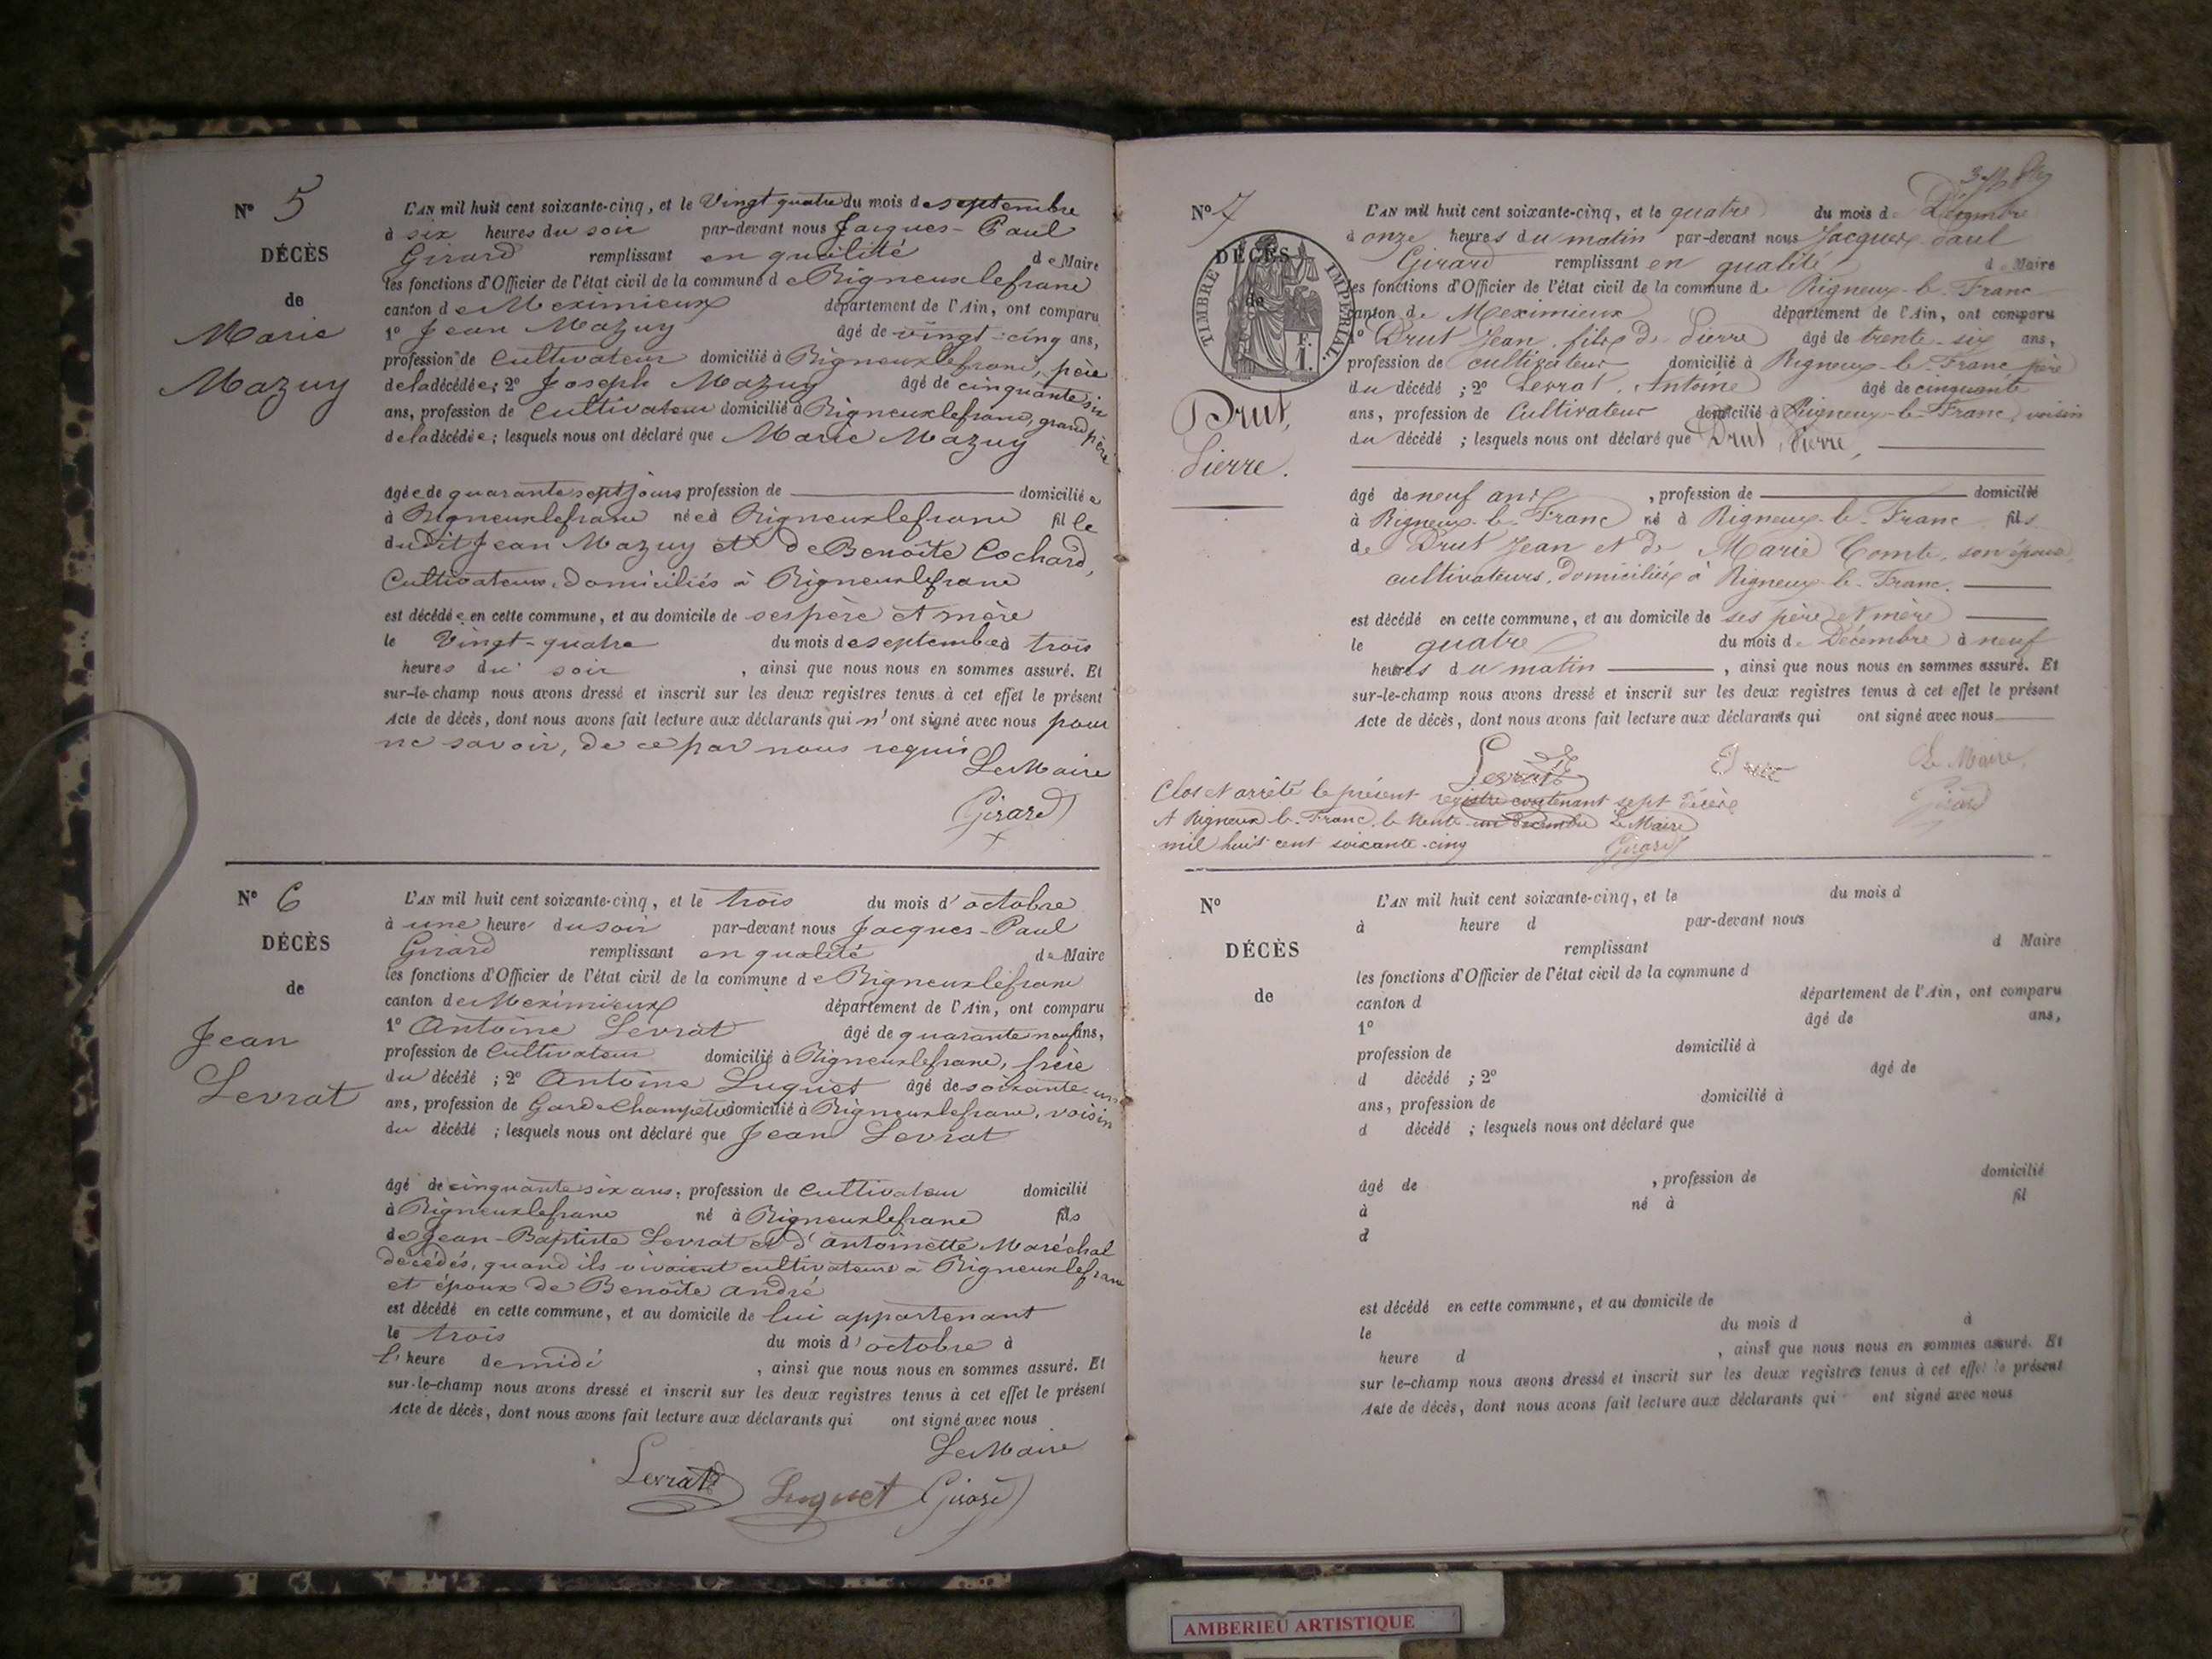 N° 5
DÉCÈS
de
Marie
Mazuy
L'AN mil huit cent soixante-cinq, et le Vingt quatre du mois de septembre
à six heures du soir par-devant nous Jacques-Paul
Girard remplissant en qualité de Maire
les fonctions d'Officier de l'état civil de la commune de Rigneuxlefranc
canton de Meximieux département de l'Ain, ont comparu
1° Jean Mazuy âgé de vingt-cinq ans,
profession de Cultivateur domicilié à Rigneuxlefranc, père
de la décédée; 2° Joseph Mazuy âgé de cinquante six
ans, profession de Cultivateur domicilié à Rigneuxlefranc, grand père
de la décédée; lesquels nous ont déclaré que Marie Mazuy
âgée de quarante sept jours profession de domiciliée
à Rigneuxlefranc née à Rigneuxlefranc fille
du Dit Jean Mazuy et de Benoîte Cochard,
Cultivateurs, domiciliés à Rigneuxlefranc
est décédée en cette commune, et au domicile de ses père et mère
le Vingt-quatre du mois de septembre à trois
heures du soir, ainsi que nous nous en sommes assuré. Et
sur-le-champ nous avons dressé et inscrit sur les deux registres tenus à cet effet le présent
Acte de décès, dont nous avons fait lecture aux déclarants qui n'ont signé avec nous pour
ne savoir, de ce par nous requis
Le Maire
Girard
N° 6
DÉCÈS
de
Jean
Levrat
L'AN mil huit cent soixante-cinq, et le trois du mois d'octobre
à une heure du soir par-devant nous Jacques-Paul
Girard remplissant en qualité de Maire
les fonctions d'Officier de l'état civil de la commune de Rigneuxlefranc
canton de Meximieux département de l'Ain, ont comparu
1° Antoine Levrat âgé de quarante neuf ans,
profession de Cultivateur domicilié à Rigneuxlefranc, frère
du décédé; 2° Antoine Luquet âgé de soixante-un
ans, profession de Garde Champêtre domicilié à Rigneuxlefranc, voisin
du décédé; lesquels nous ont déclaré que Jean Levrat
âgé de cinquante six ans, profession de Cultivateur domicilié
à Rigneuxlefranc né à Rigneuxlefranc fils
de Jean-Baptiste Levrat et d'Antoinette Maréchal
décédés, quand ils vivaient cultivateurs à Rigneuxlefranc
et époux de Benoîte André
est décédé en cette commune, et au domicile de lui appartenant
le trois du mois d'octobre à
l'heure de midi, ainsi que nous nous en sommes assuré. Et
sur-le-champ nous avons dressé et inscrit sur les deux registres tenus à cet effet le présent
Acte de décès, dont nous avons fait lecture aux déclarants qui ont signé avec nous
Le Maire
Levrat Luquet Girard
N° 7
DÉCÈS
de
TIMBRE IMPÉRIAL
F.
1.
Drut,
Pierre.
L'AN mil huit cent soixante-cinq, et le quatre du mois de Décembre
à onze heures du matin par-devant nous Jacques Paul
Girard remplissant en qualité de Maire
les fonctions d'Officier de l'état civil de la commune de Rigneux-le-Franc
canton de Meximieux département de l'Ain, ont comparu
1° Drut Jean, fils de Pierre âgé de trente-six ans,
profession de cultivateur domicilié à Rigneux-le-Franc père
du décédé; 2° Levrat, Antoine âgé de cinquante
ans, profession de Cultivateur domicilié à Rigneux-le-Franc, voisin
du décédé; lesquels nous ont déclaré que Drut, Pierre,
âgé de neuf ans, profession de domicilié
à Rigneux-le-Franc né à Rigneux-le-Franc fils
de Drut Jean et de Marie Comte, son épouse
cultivateurs, domiciliés à Rigneux-le-Franc.
est décédé en cette commune, et au domicile de ses père et mère
le quatre du mois de Décembre à neuf
heures du matin, ainsi que nous nous en sommes assuré. Et
sur-le-champ nous avons dressé et inscrit sur les deux registres tenus à cet effet le présent
Acte de décès, dont nous avons fait lecture aux déclarants qui ont signé avec nous
Levrat Drut Le Maire,
Girard
Clos et arrêté le présent registre contenant sept décès
A Rigneux-le-Franc, le trente un Décembre Le Maire
mil huit cent soixante-cinq Girard
N°
DÉCÈS
de
L'AN mil huit cent soixante-cinq, et le du mois d
à heure d par-devant nous
remplissant d Maire
les fonctions d'Officier de l'état civil de la commune d
canton d département de l'Ain, ont comparu
1° âgé de ans,
profession de domicilié à
d décédé ; 2° âgé de
ans, profession de domicilié à
d décédé ; lesquels nous ont déclaré que
âgé de , profession de domicilié
à né à fil
d
est décédé en cette commune, et au domicile de
le du mois d à
heure d , ainsi que nous nous en sommes assuré. Et
sur le-champ nous avons dressé et inscrit sur les deux registres tenus à cet effet le présent
Acte de décès, dont nous avons fait lecture aux déclarants qui ont signé avec nous
AMBERIEU ARTISTIQUE